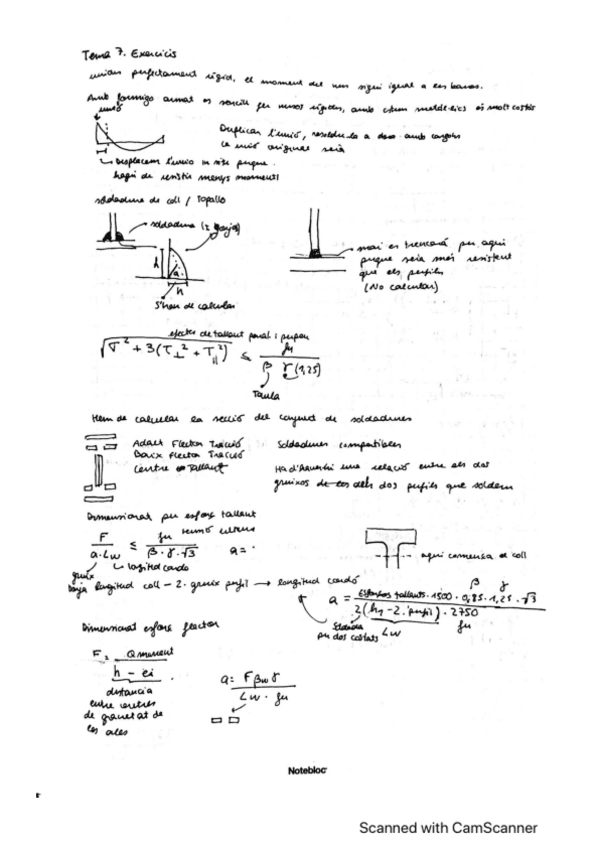 Tema 7. Exercicis
unions perfectament rígid, el moment del nus sigui igual a les barres.
Amb formigó armat es senzill fer nusos rígids, amb estruc metàl·lics és molt costós
unió
Duplicar l'unió, resoldre-la a amb cargols
la unió original serà
Desplacem l'unió un sitio perque
hagi de resistir menys moment!
soldadura de coll / Topallo
soldadura (2
h
a
h
S'han de calcular
mai es trencarà per aqui
perque seria més resistent
que els perfils
(No calcular)
efectes de tallant paral i perpen
√σ² + 3(τ⊥² + τ∥²) ≤ fu / β γ (1,25)
Taula
Hem de calcular la secció del conjunt de soldadures
Adalt Flector Tracció
Baix Flector Tracció
Centre → Tallant
Soldadures compatibles
Ha d'haver-hi una relació entre els dos
gruixos de els dels dos perfils que soldem
Dimensionat per esforç tallant
F / a·Lw ≤ fu / β·γ·√3
tensió ultima
a = ·
gruix
longitud cordó
aqui comensa el coll
longitud coll – 2 · gruix perfil → longitud cordó
a = Esforços tallants · 1500 · 0,85 · 1,25 · √3 / 2(h1 – 2 · perfil) · 2750
β γ
Lw
fu
per dos costats
Dimensionat esforç flector
F = Q moment / h – ei
distancia
entre centres
de gravetat de
les ales
a = F βw γ / Lw · fu
Notebloc
Scanned with CamScanner